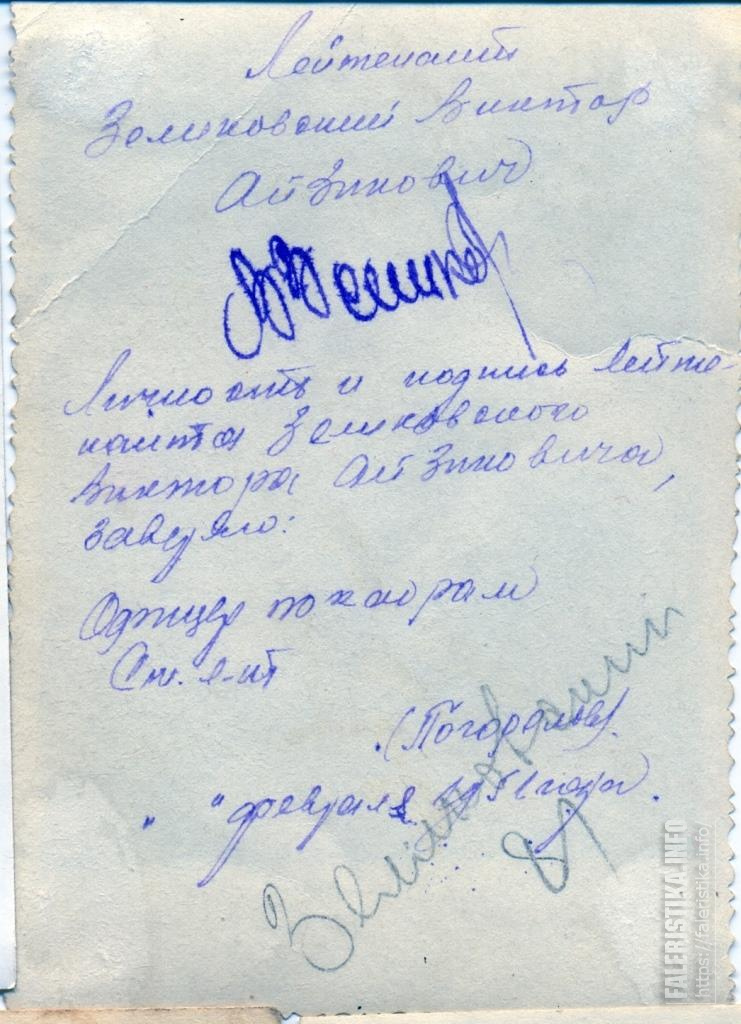 Лейтенант
Зелиховский Виктор
Айзикович
Личность и подпись Лейте-
нанта Зелиховского
Виктора Айзиковича,
заверяю:
Офицер по кадрам
Ст. л-нт
(Погорелов).
" " февраля 1951 года.
81
FALERISTIKA.INFO
https://faleristika.info/